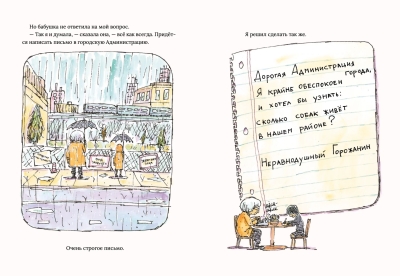 Но бабушка не ответила на мой вопрос.
— Так я и думала, — сказала она, — всё как всегда. Придёт-
ся написать письмо в городскую Администрацию.
Очень строгое письмо.
Я решил сделать так же.
Дорогая Администрация
Я крайне обеспокоен города,
и хотел бы узнать:
сколько собак живёт
в нашем районе?
Неравнодушный Горожанин